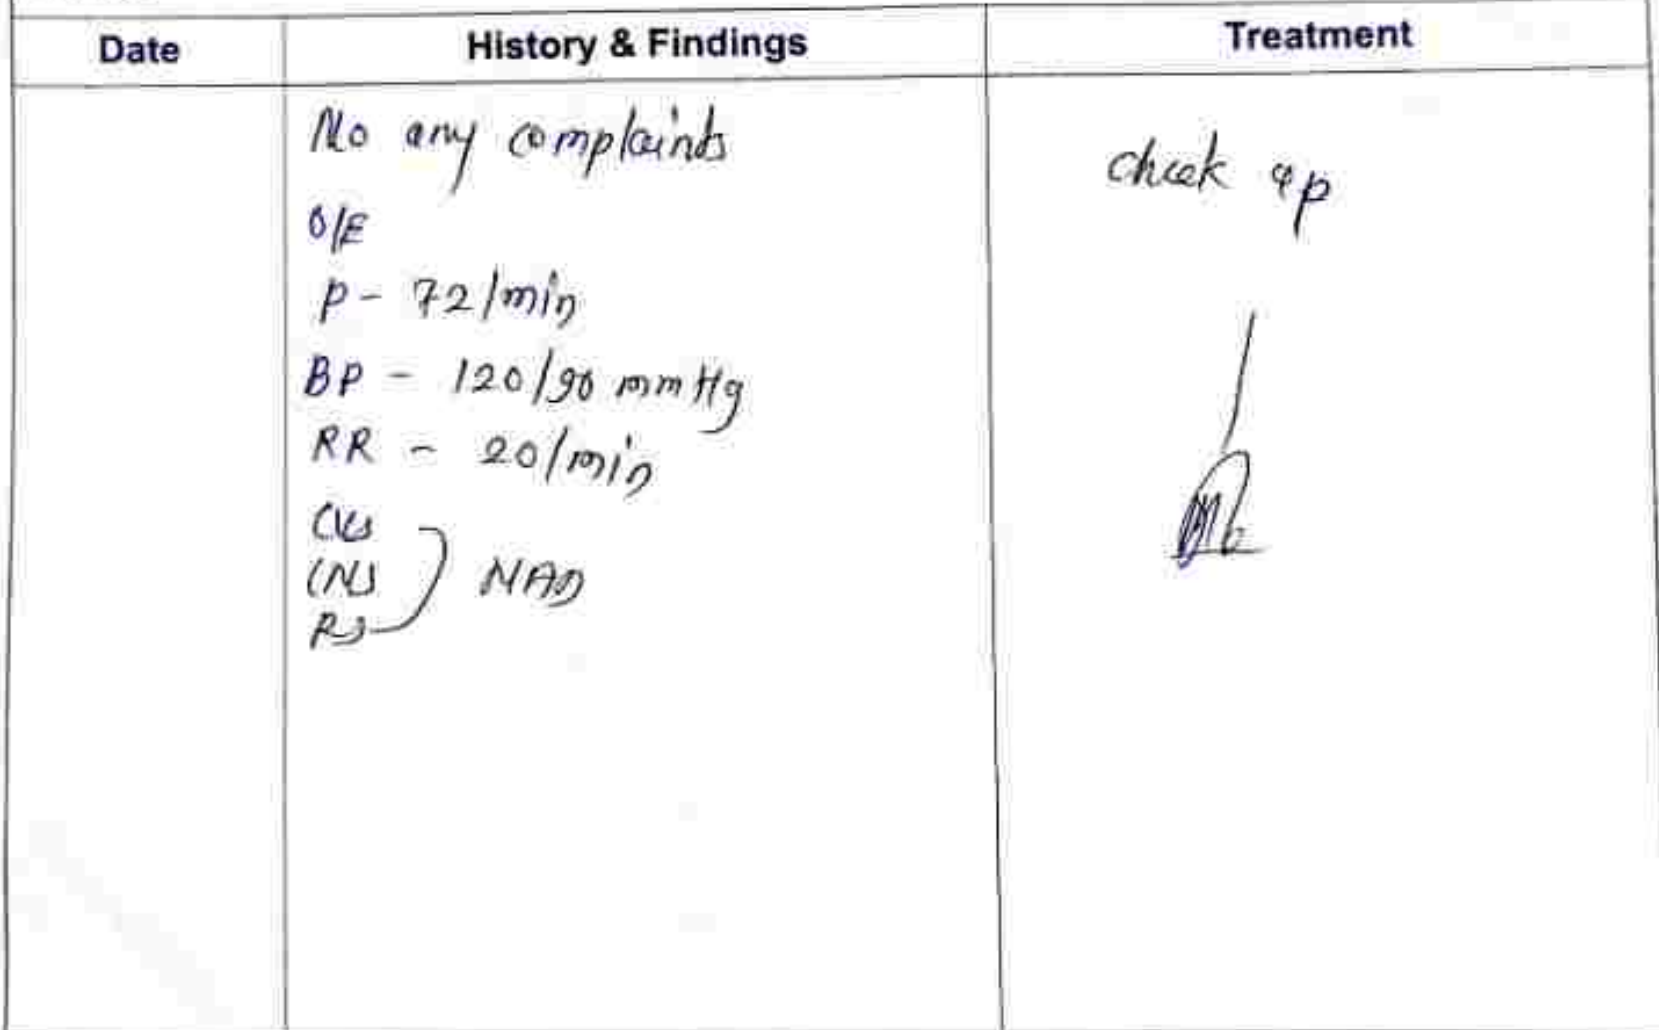 Date History & Findings Treatment
No any complaints
check up
O/E
P - 72/min
BP - 120/90 mmHg
RR - 20/min
CVS
CNS NAD
RS